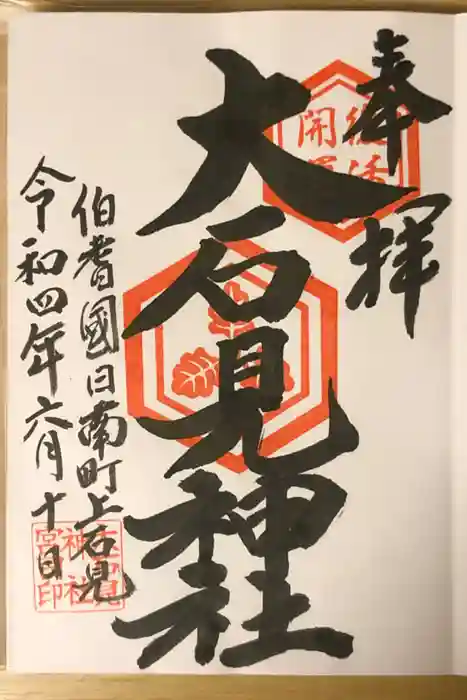 奉拝
復活
開運
大石見神社
伯耆國日南町上石見
令和四年六月十日
神社
宮印